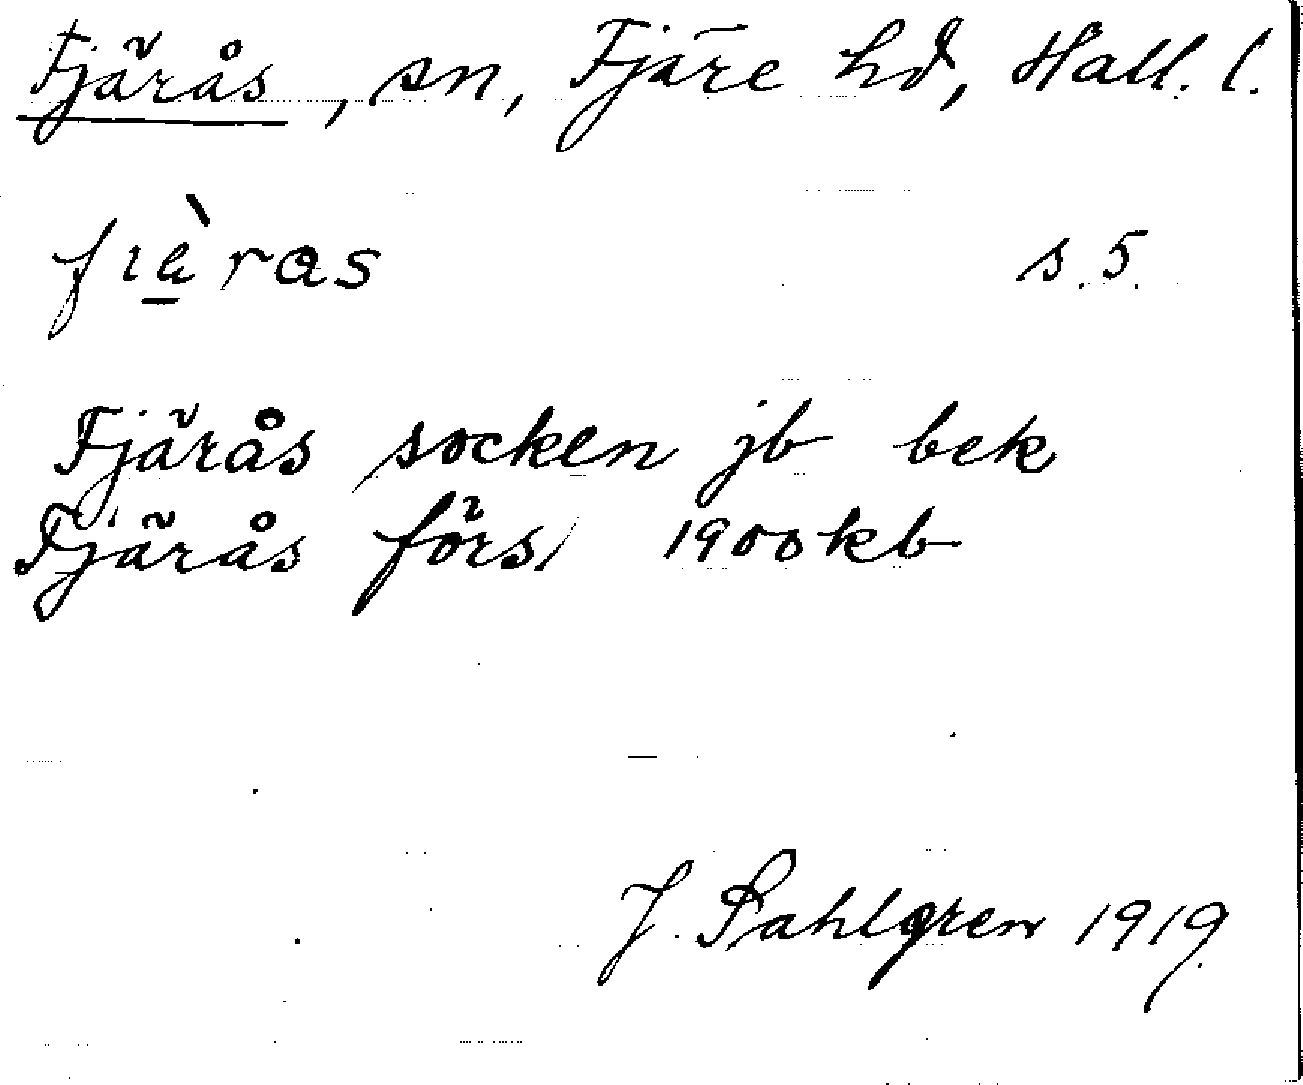 Fjärås, sn, Fjäre hd, Hall. l.
fıè̱ras s. 5.
Fjärås socken jb bek
Fjärås förs, 1900 kb
J. Sahlgren 1919.